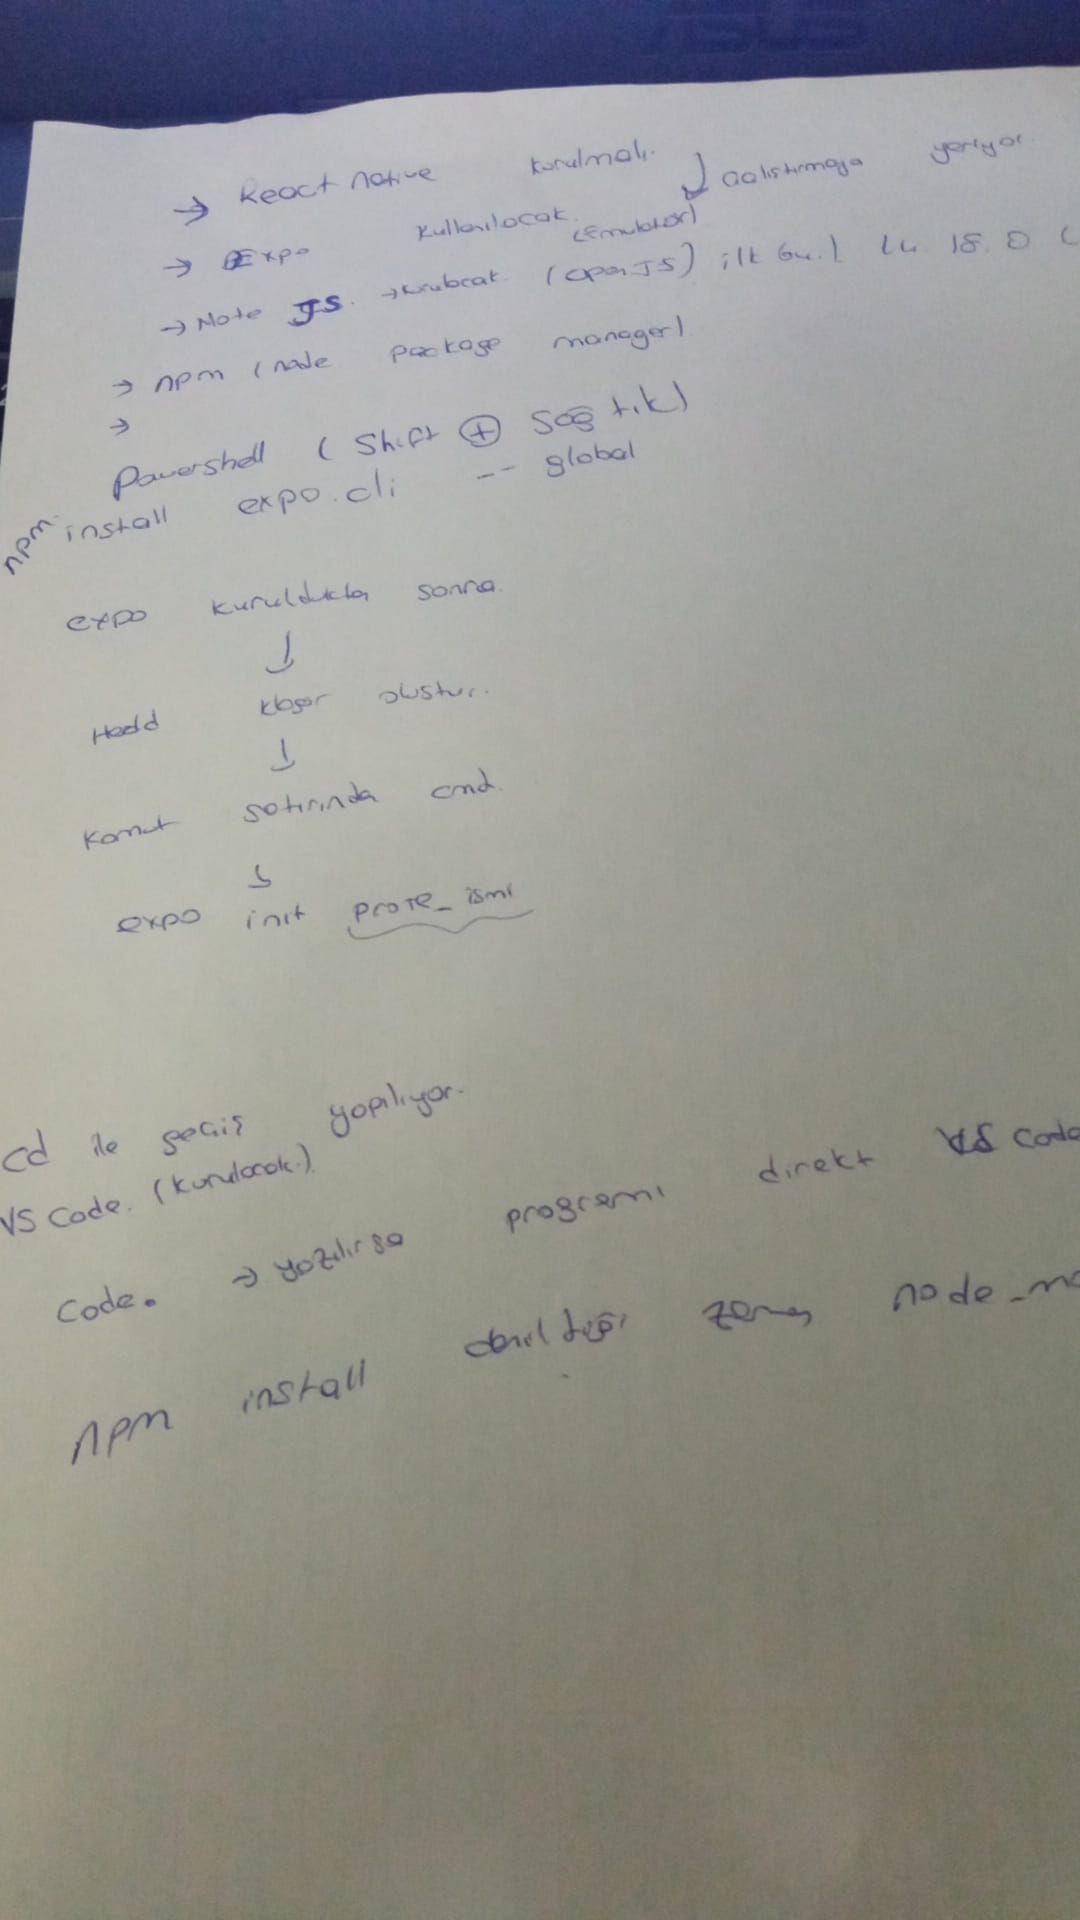 ASUS
→ React native kurulmalı.
→ Expo kullanılacak. (Emulatör) çalıştırmaya yarıyor.
→ Note JS. → kurulacak (OpenJS) ilk bu.) 14. 18. 0
→ npm (node package manager)
→
Powershell (Shift + sağ tık)
npm install expo.cli -- global
expo kurulduktan sonra.
↓
Hedef klasör oluştur.
↓
Komut satırında cmd.
↓
expo init proje_ismi
cd ile geçiş yapılıyor.
VS Code. (kurulacak.)
Code. → yazılırsa programı direkt VS Code
npm install denildiği zaman node_mo